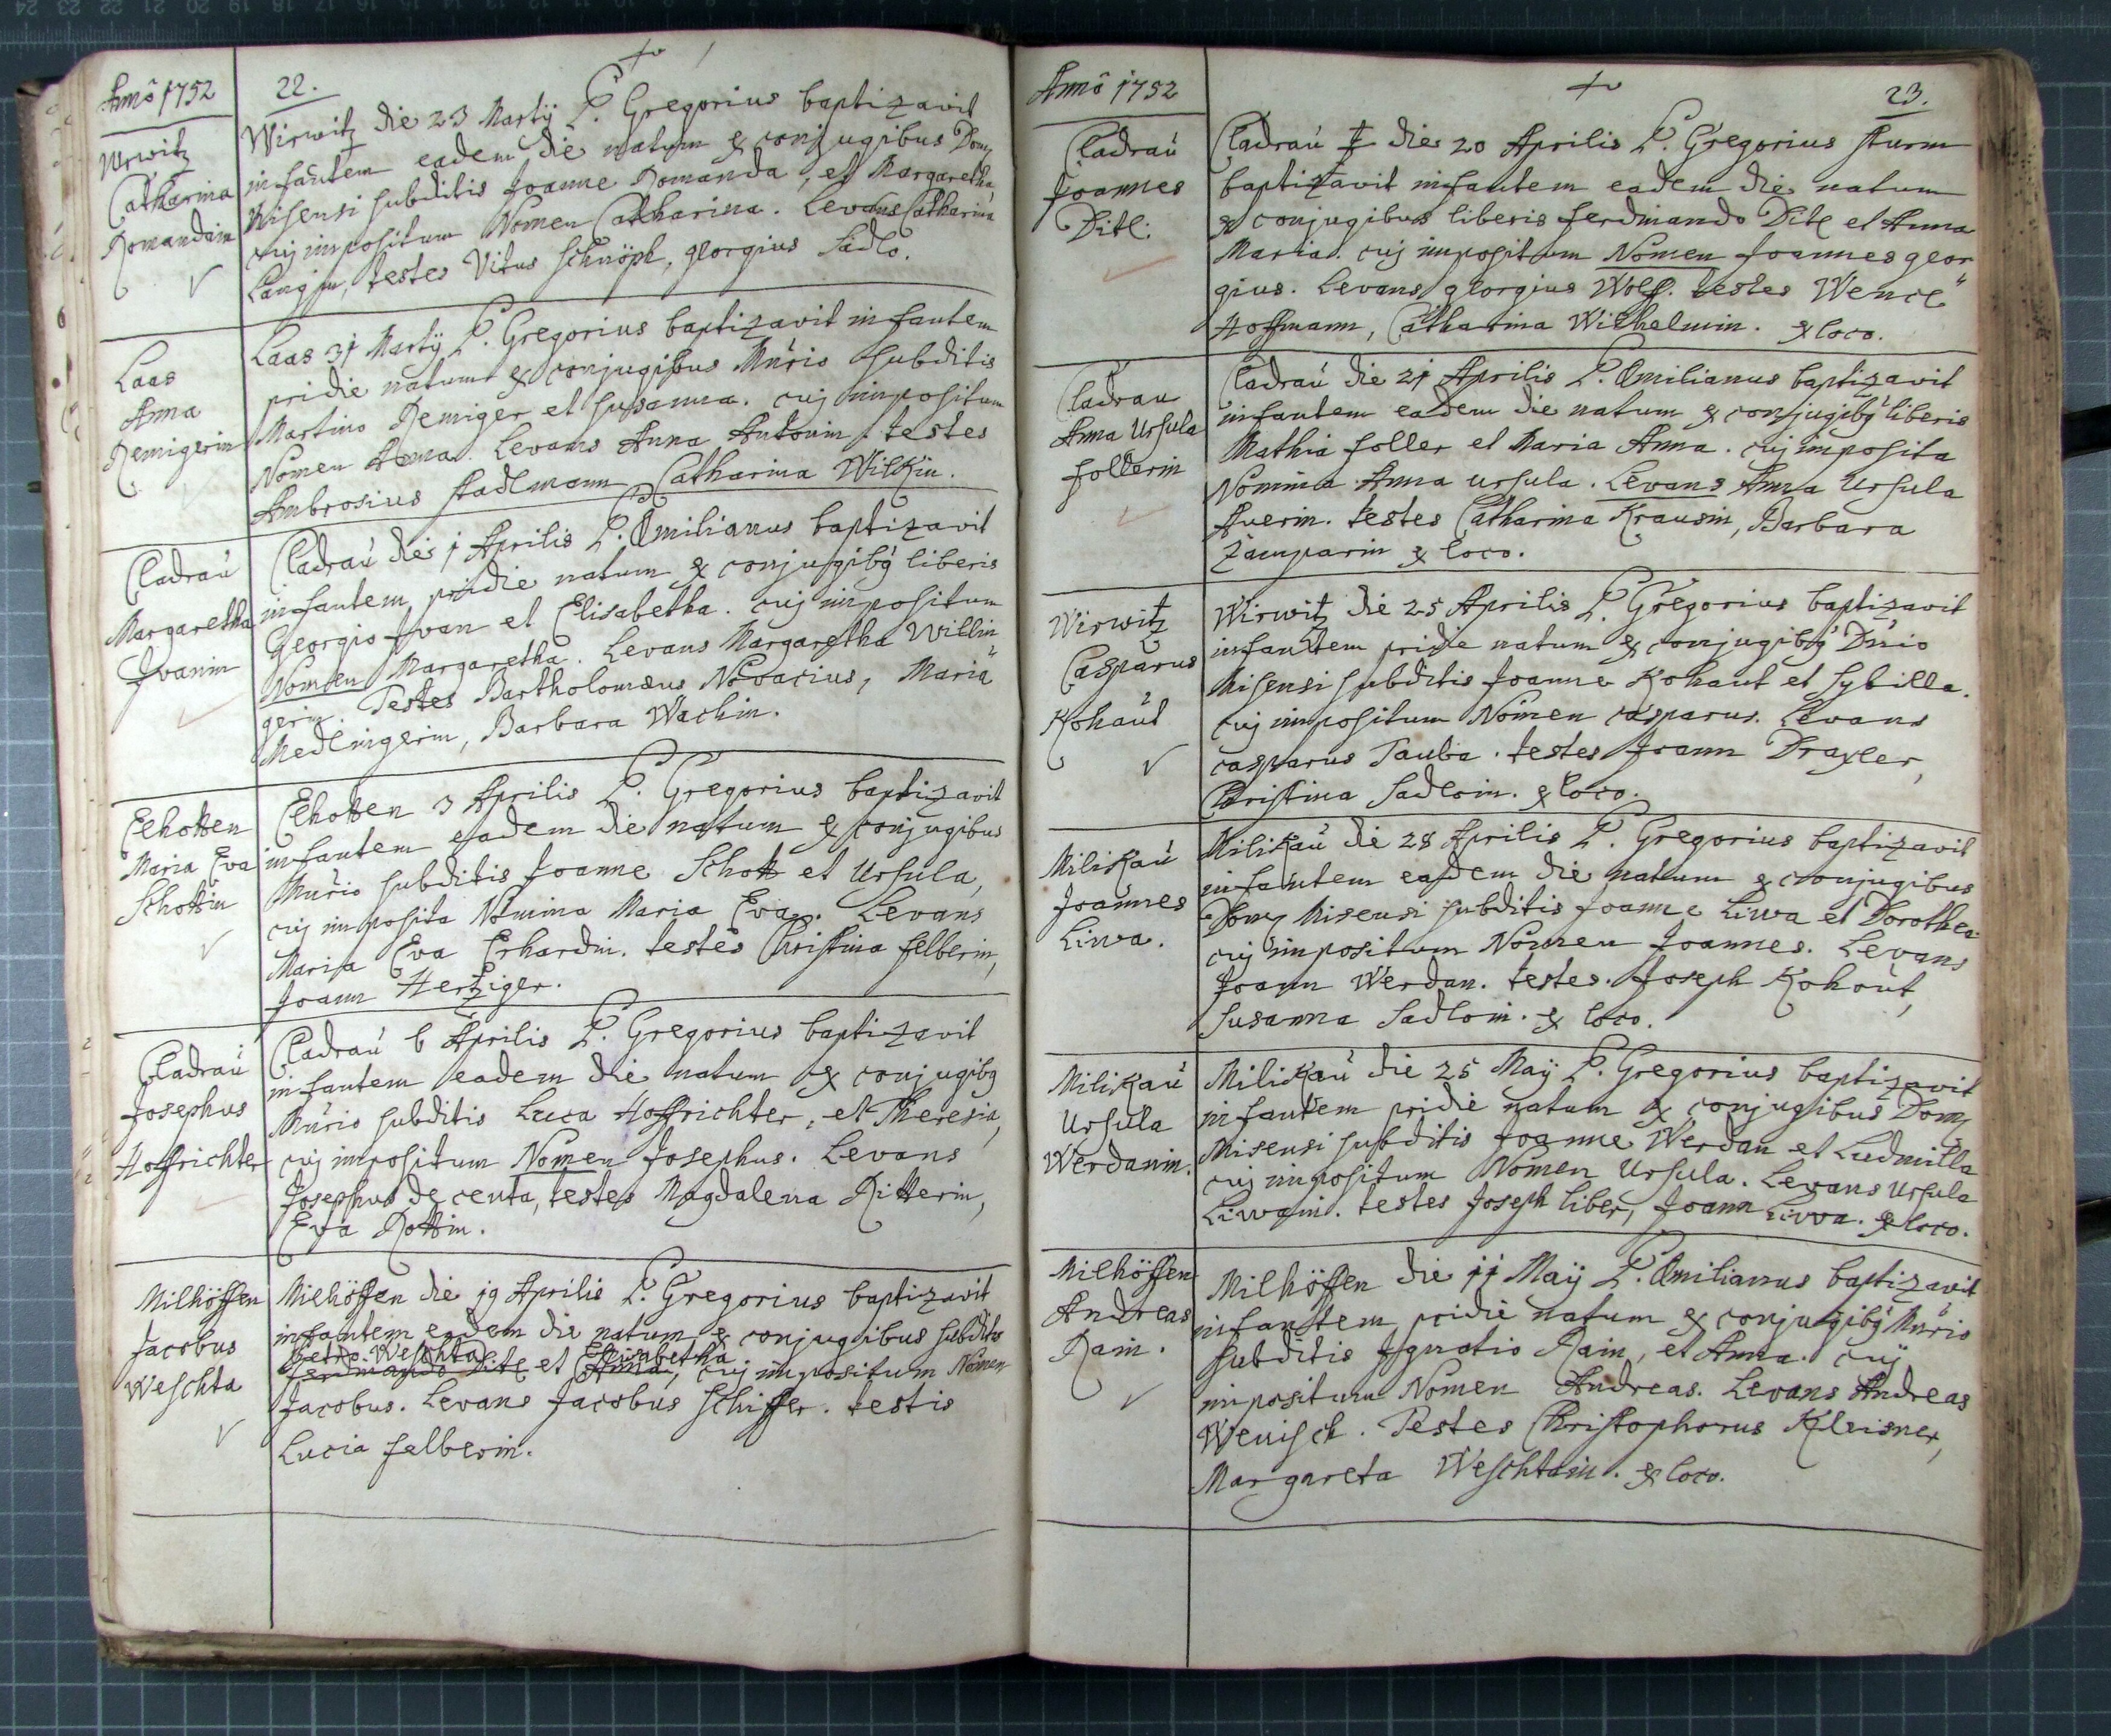 Annô 1752
22.
Wirwitz
Catharina
Romandain
Wirwitz die 23 Martÿ P. Gregorius baptizavit
infantem eadem die natum ex conjugibus Dom̄
Misensi subditis Joanne Romanda, et Margaretha
cuj impositum Nomen Catharina. Levans Catharina
Langin, testes Vitus Schnöph, georgius Sadlo.
Laas
Anna
Remigerin
Laas 31 Martÿ P. Gregorius baptizavit infantem
pridie natum ex conjugibus Mũrio subditis
Martino Remiger et Susanna. cuj impositum
Nomen Anna. Levans Anna Antonin, testes
Ambrosius Stadlmann Catharina Wilkin.
Cladrau
Margaretha
Jvanin
Cladrau die 1 Aprilis P. Æmilianus baptizavit
infantem pridie natum ex conjugibꝰ liberis
Georgio Jvan et Elisabetha. cuj impositum
Nomen Margaretha. Levans Margaretha Willin
gerin. Testes Bartholomæus Novacius, Maria
Medlingerin, Barbara Wachin.
Elhotten
Maria Eva
Schottin
Elhotten 3 Aprilis P. Gregorius baptizavit
infantem eadem die natum ex conjugibus
Mũrio subditis Joanne Schott et Ursula,
cuj imposita Nomina Maria Eva. Levans
Maria Eva Erhardin. testes Christina felberin,
Joann Hertziger.
Cladrau
Josephus
Hoffrichter
Cladrau 6 Aprilis P. Gregorius baptizavit
infantem eadem die natum ex conjugibꝰ
Mũrio subditis Luca Hoffrichter, et Theresia,
cuj impositum Nomen Josephus. Levans
Josephus de centa, testes Magdalena Ritterin,
Eva Rottin.
Milhöffen
Jacobus
Weschta
Milhöffen die 19 Aprilis P. Gregorius baptizavit
infantem eadem die natum ex conjugibus subditis
Petro Weschta Elisabetha
Ferdinando Ditl et Anna, cuj impositum Nomen
Jacobus. Levans Jacobus Schiffer. testis
Lucia felberin.
Annô 1752
23.
Cladrau
Joannes
Ditl.
Cladrau die 20 Aprilis P. Gregorius Sturm
baptizavit infantem eadem die natum
ex conjugibus liberis ferdinando Ditl et Anna
Maria. cuj impositum Nomen Joannes geor
gius. Levans georgius Wolf. testes Wencl
Hoffmann, Catharina Wilhelmin. ex loco.
Cladrau
Anna Ursula
follerin
Cladrau die 21 Aprilis P. Æmilianus baptizavit
infantem eadem die natum ex conjugibꝰ liberis
Mathia foller et Maria Anna. cuj imposita
Nomina Anna Ursula. Levans Anna Ursula
Auerin. testes Catharina Krausin, Barbara
Zamparin ex loco.
Wirwitz
Casparus
Kohaut
Wirwitz die 25 Aprilis P. Gregorius baptizavit
infantem pridie natum ex conjugibꝰ Dũio
Misensi subditis Joanne Kohaut et Sybilla.
cuj impositum Nomen casparus. Levans
casparus Tauba. testes Joann Draxler,
Christina Sadloin. ex loco.
Milikau
Joannes
Liwa.
Milikau die 28 Aprilis P. Gregorius baptizavit
infantem eadem die natum ex conjugibus
Dom̄ Misensi subditis Joanne Liwa et Dorothea
cuj impositum Nomen Joannes. Levans
Joann Werdan. testes. Joseph Kohout,
Susanna Sadloin. ex loco.
Milikau
Ursula
Werdanin.
Milikau die 25 Maÿ P. Gregorius baptizavit
infantem pridie natum ex conjugibus Dom̄
Misensi subditis Joanne Werdan et Ludmilla
cuj impositum Nomen Ursula. Levans Ursula
Liwain. testes Joseph liber, Joann Liwa. ex loco.
Milhöffen
Andreas
Rain.
Milhöffen die 11 Maÿ P. Æmilianus baptizavit
infantem pridie natum ex conjugibꝰ Mũrio
subditis Jgnatio Rain, et Anna. cuj
impositum Nomen Andreas. Levans Andreas
Wenisch. Testes Christophorus Kleisner,
Margareta Weschtain. ex loco.